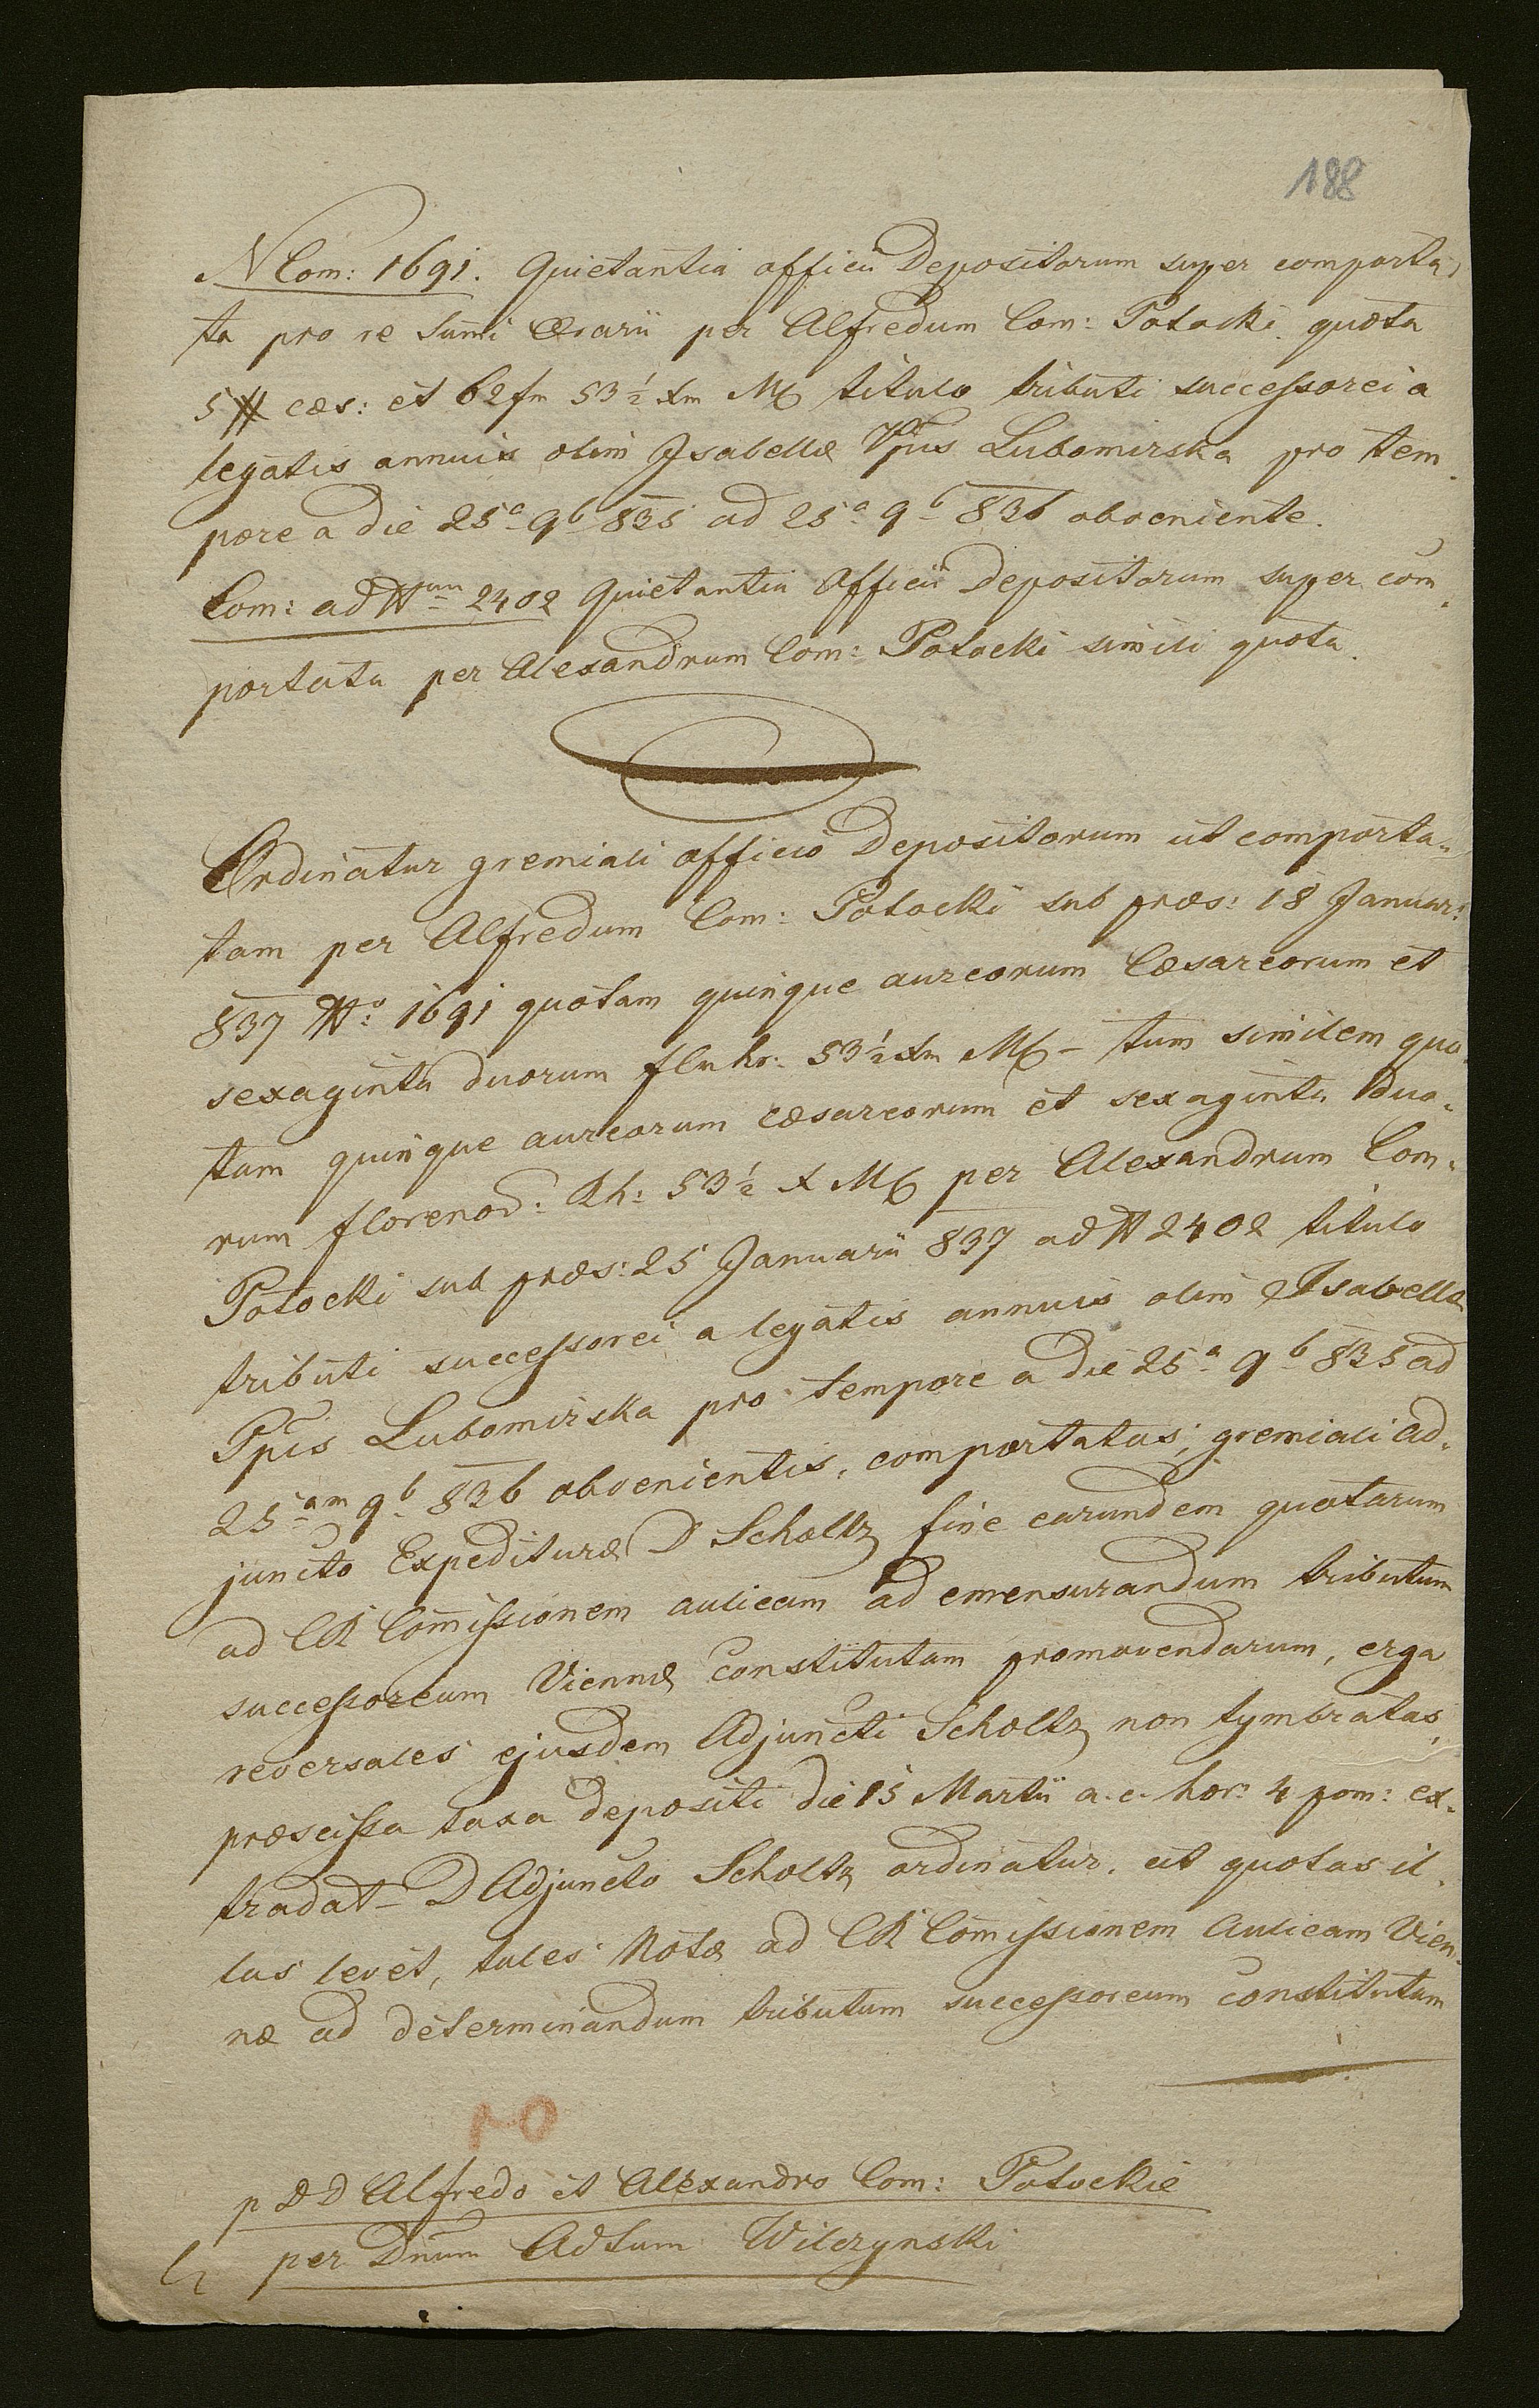 188
N Com: 1691. Quietantia officii Depositorum super comporta
ta pro re Sumi Ærarii per Alfredum Com: Potocki quota
5 # cæs: et 62 fm 53 ½ xm M titulo tributi successorei a
legatis annuis olim Isabellæ Ppis Lubomirska pro tem
pore a die 25ª 9b 835 ad 25ª 9b 836 obveniente.
Com: ad Num 2402 Quietantia Officii Depositorum super com
portata per Alexandrum Com: Potocki simili quota.
Ordinatur gremiali officio Depositorum ut comporta-
tam per Alfredum Com: Potocki sub præs: 18 Januar:
837 No: 1691 quotam quinque aureorum Cæsareorum et
sexaginta duorum flnhr: 53 ½ xm M – tum similem quo
tam quinque aureorum cæsareorum et sexaginta duo-
rum florenor: Rh: 53 ½ x M per Alexandrum Com.
Potocki sub præs: 25 Januarii 837 ad N 2402 titulo
tributi successorei a legatis annuis olim Isabellæ
Ppis Lubomirska pro tempore a die 25ª 9b 835 ad
25am 9b 836 obvenientis, comportatas, gremiali ad-
juncto Expedituræ D Scholtz fine earundem quotarum
ad CR Comissionem aulicam ad emensurandum tributum
successoreum Viennæ constitutam promovendarum, erga
reversales ejusdem Adjuncti Scholtz non tymbratas,
præscissa taxa depositi die 15 Martii a. c. hor: 4 pom: ex-
tradat – D Adjuncto Scholtz ordinatur, ut quotas il-
las levet, tales Notæ ad CR Comissionem Aulicam Vien
næ ad determinandum tributum successoreum constitutam
p DD Alfredo et Alexandro Com: Potockie
per Dnum Adtum Wilczynski